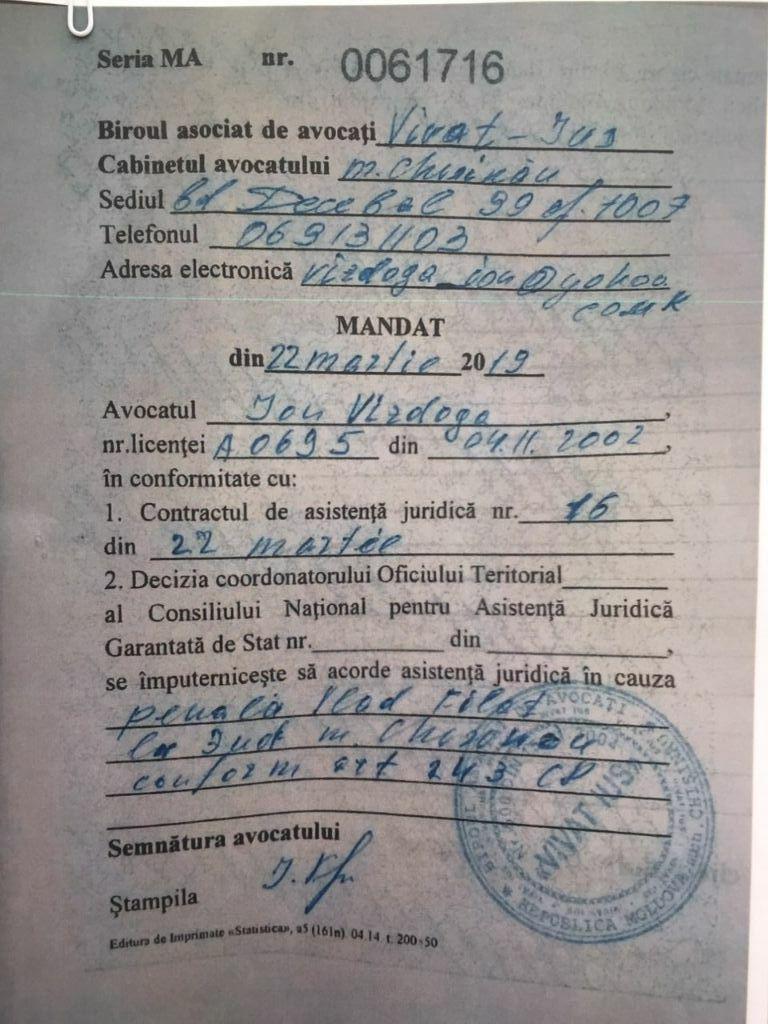 Seria MA nr. 0061716
Biroul asociat de avocați Vivat-Jus
Cabinetul avocatului m. Chisinău
Sediul bd Decebal 99 of. 1007
Telefonul 069131103
Adresa electronică vizdoga_ion@yahoo.
com
MANDAT
din 22 martie 2019
Avocatul Ion Vizdoga,
nr.licenței A 0695 din 04.11.2002,
în conformitate cu:
1. Contractul de asistență juridică nr. 16
din 22 martie
2. Decizia coordonatorului Oficiului Teritorial
al Consiliului Național pentru Asistență Juridică
Garantată de Stat nr. din ,
se împuternicește să acorde asistență juridică în cauza
penala Vlad Filat
la Jud m. Chisinău
conform art 243 CP
Semnătura avocatului
Ștampila
Editura de Imprimate «Statistica», a5 (161n) 04.14 t. 200×50
AVOCAȚI
«VIVAT IUS»
REPUBLICA MOLDOVA, mun. CHIȘINĂU